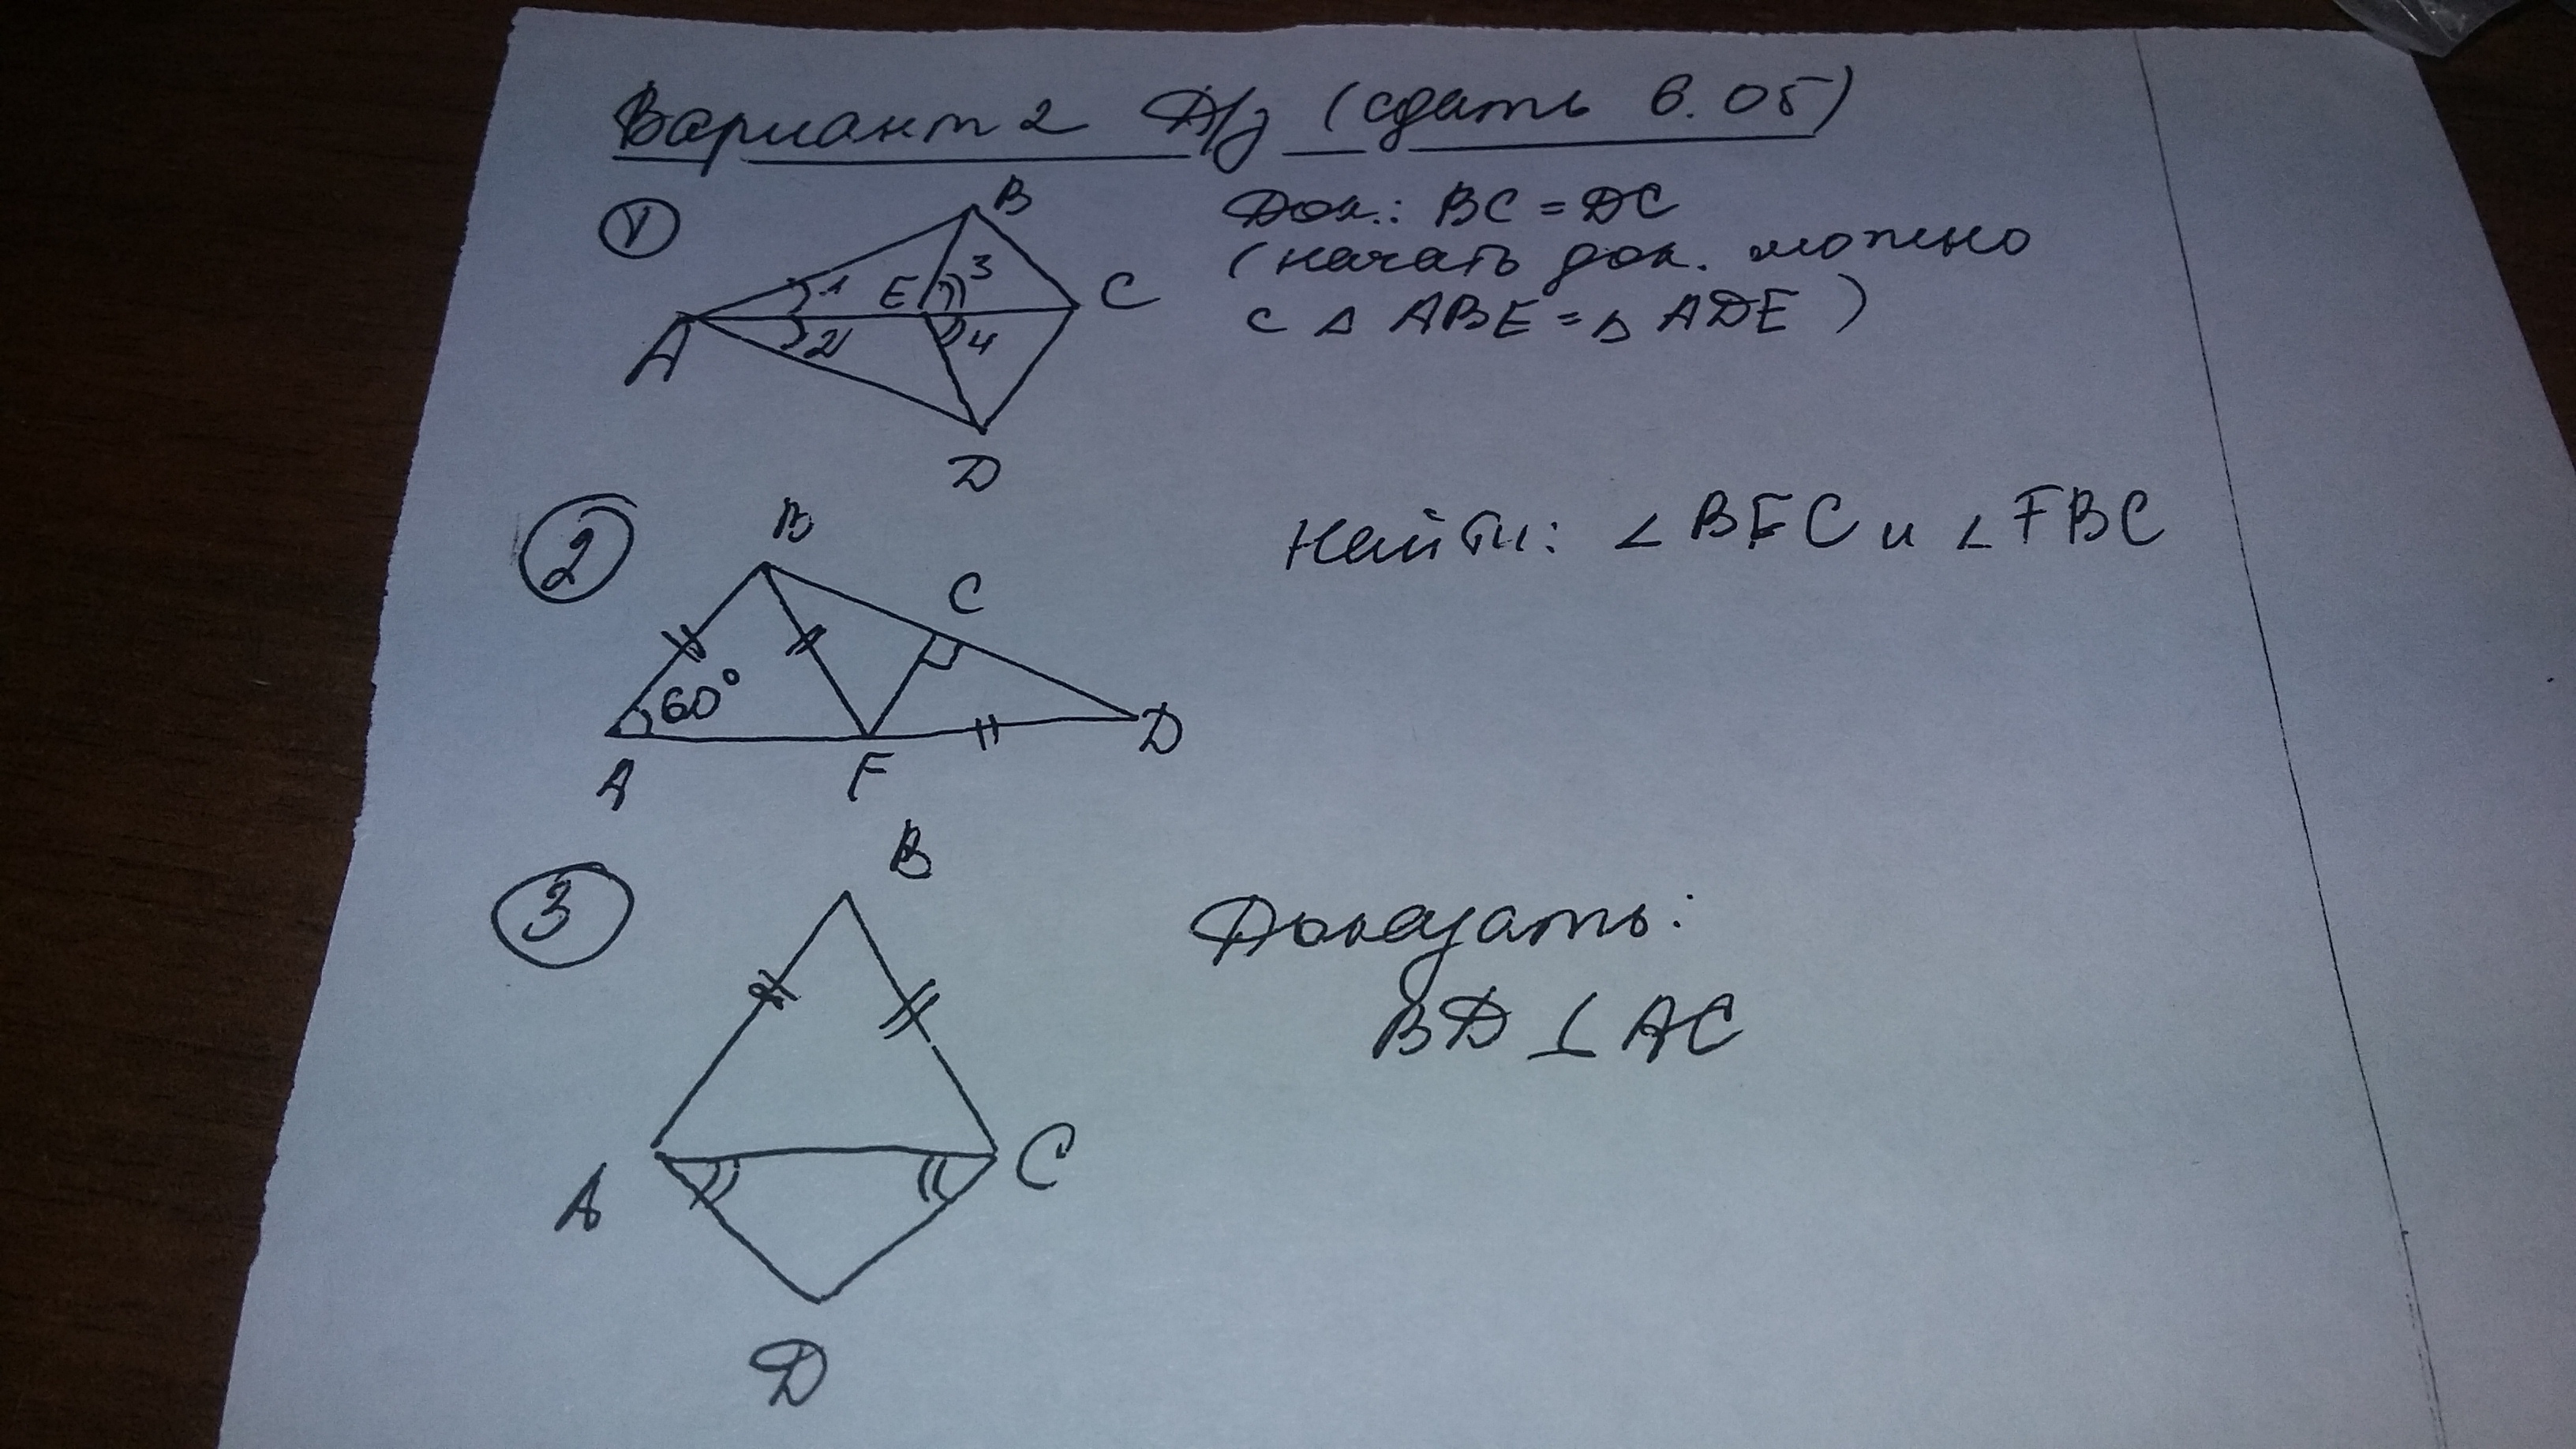 Вариант 2 Д/з (сдать 6.05)
1
Док.: BC = DC
(начать док. можно
с △ ABE = △ ADE)
B
1
E
3
C
A
2
4
D
2
Найти: ∠ BFC и ∠ FBC
B
C
60°
A
F
D
3
Доказать:
BD ⊥ AC
B
A
C
D